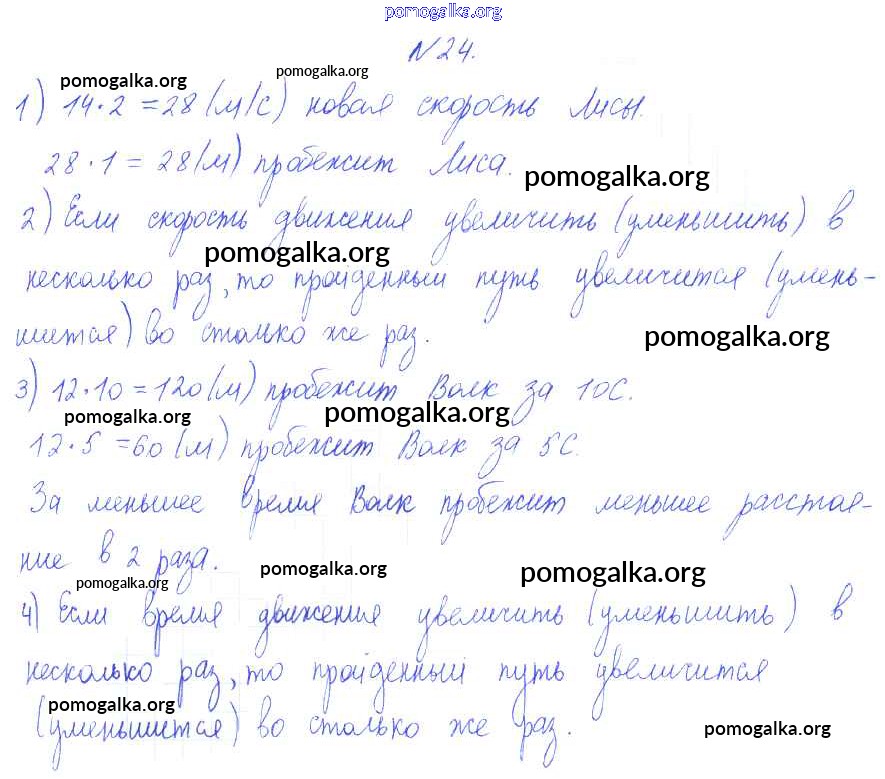 pomogalka.org
№24.
pomogalka.org pomogalka.org
1) 14·2=28 (м/с) новая скорость Лисы.
28·1=28(м) пробежит Лиса.
pomogalka.org
2) Если скорость движения увеличить (уменьшить) в
pomogalka.org
несколько раз, то пройденный путь увеличится (умень-
шится) во столько же раз.
pomogalka.org
3) 12·10=120(м) пробежит Волк за 10с.
pomogalka.org pomogalka.org
12·5=60(м) пробежит Волк за 5с.
За меньшее время Волк пробежит меньшее расстоя-
ние в 2 раза.
pomogalka.org pomogalka.org pomogalka.org
4) Если время движения увеличить (уменьшить) в
несколько раз, то пройденный путь увеличится
pomogalka.org
(уменьшится) во столько же раз.
pomogalka.org